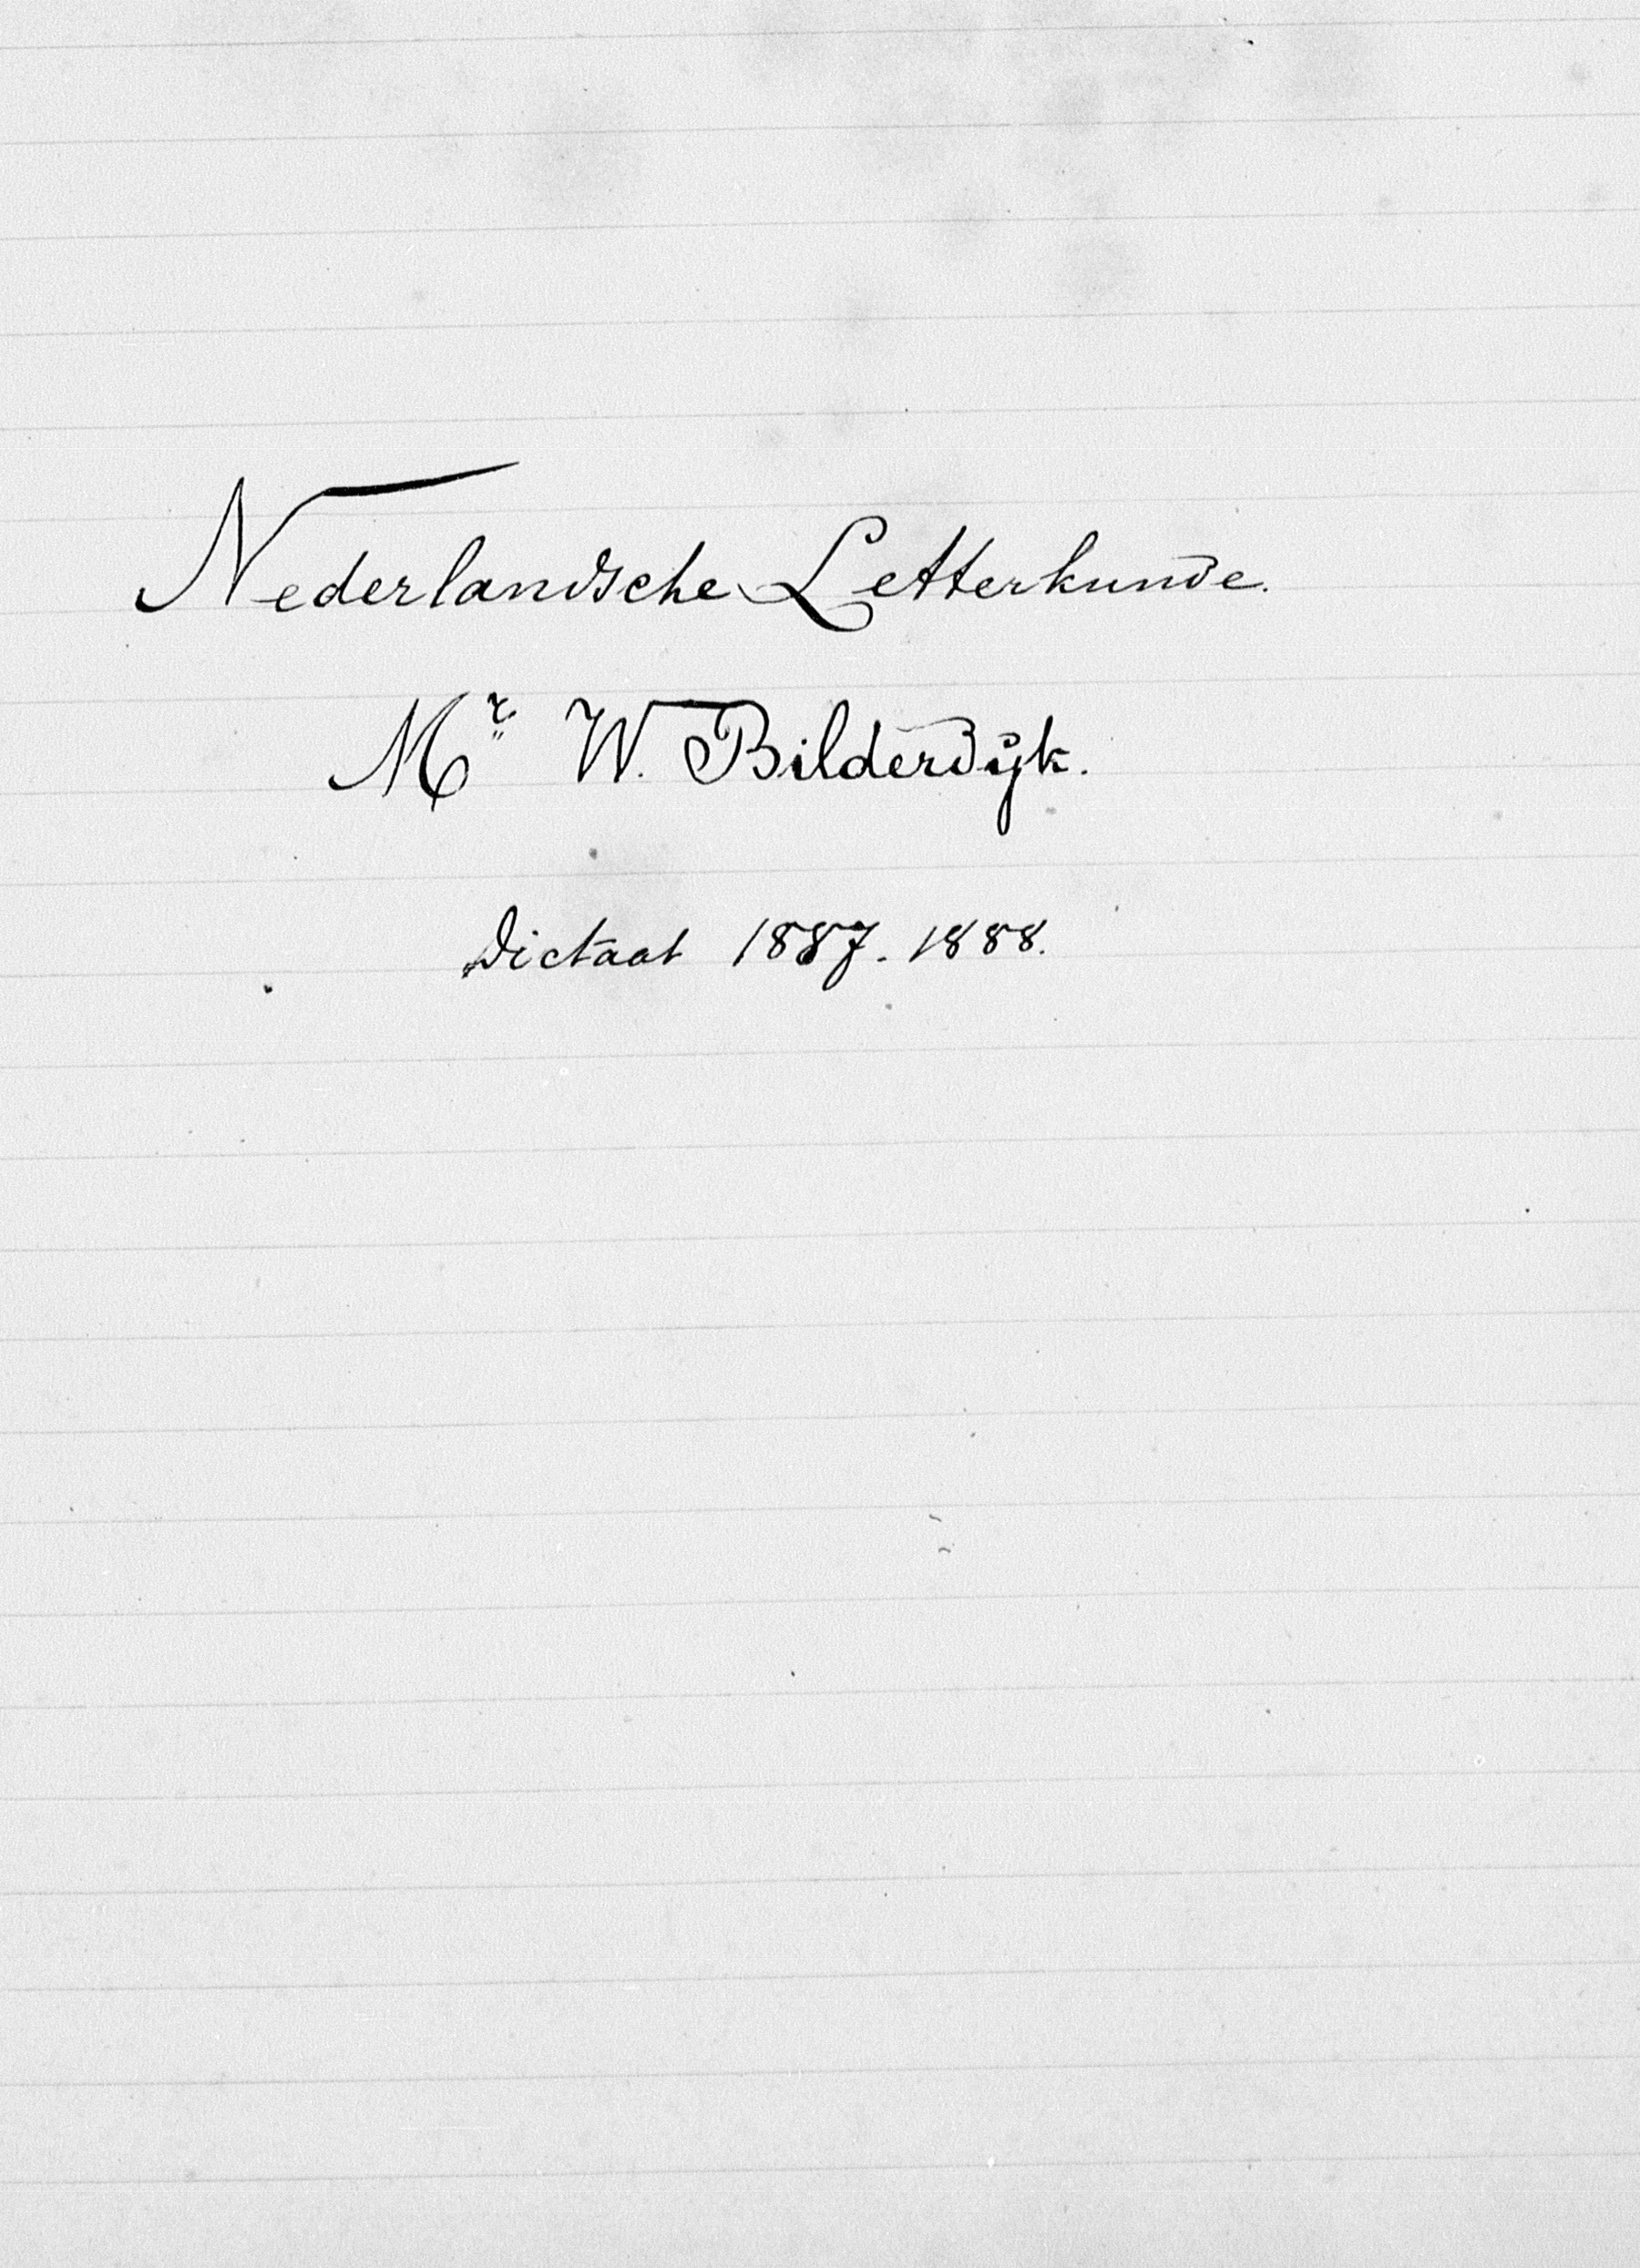 Nederlandsche Letterkunde.
Mr. W. Bilderdijk.
Dictaat 1887-1888.